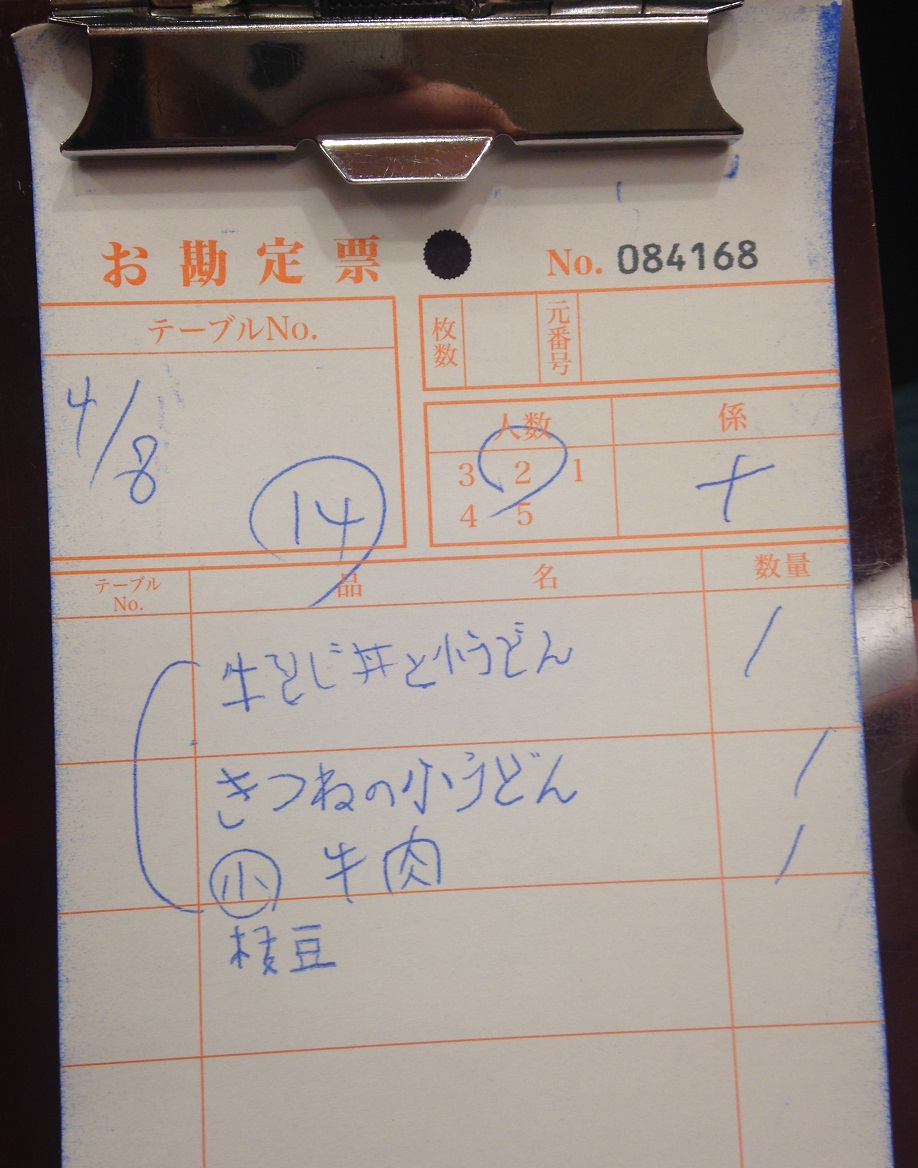 お勘定票 No. 084168
テーブルNo.
枚数
元番号
4/8
14
人数
係
3 2 1
4 5
十
テーブルNo.
品名
数量
牛とじ丼と小うどん 1
きつねの小うどん 1
小 牛肉 1
枝豆